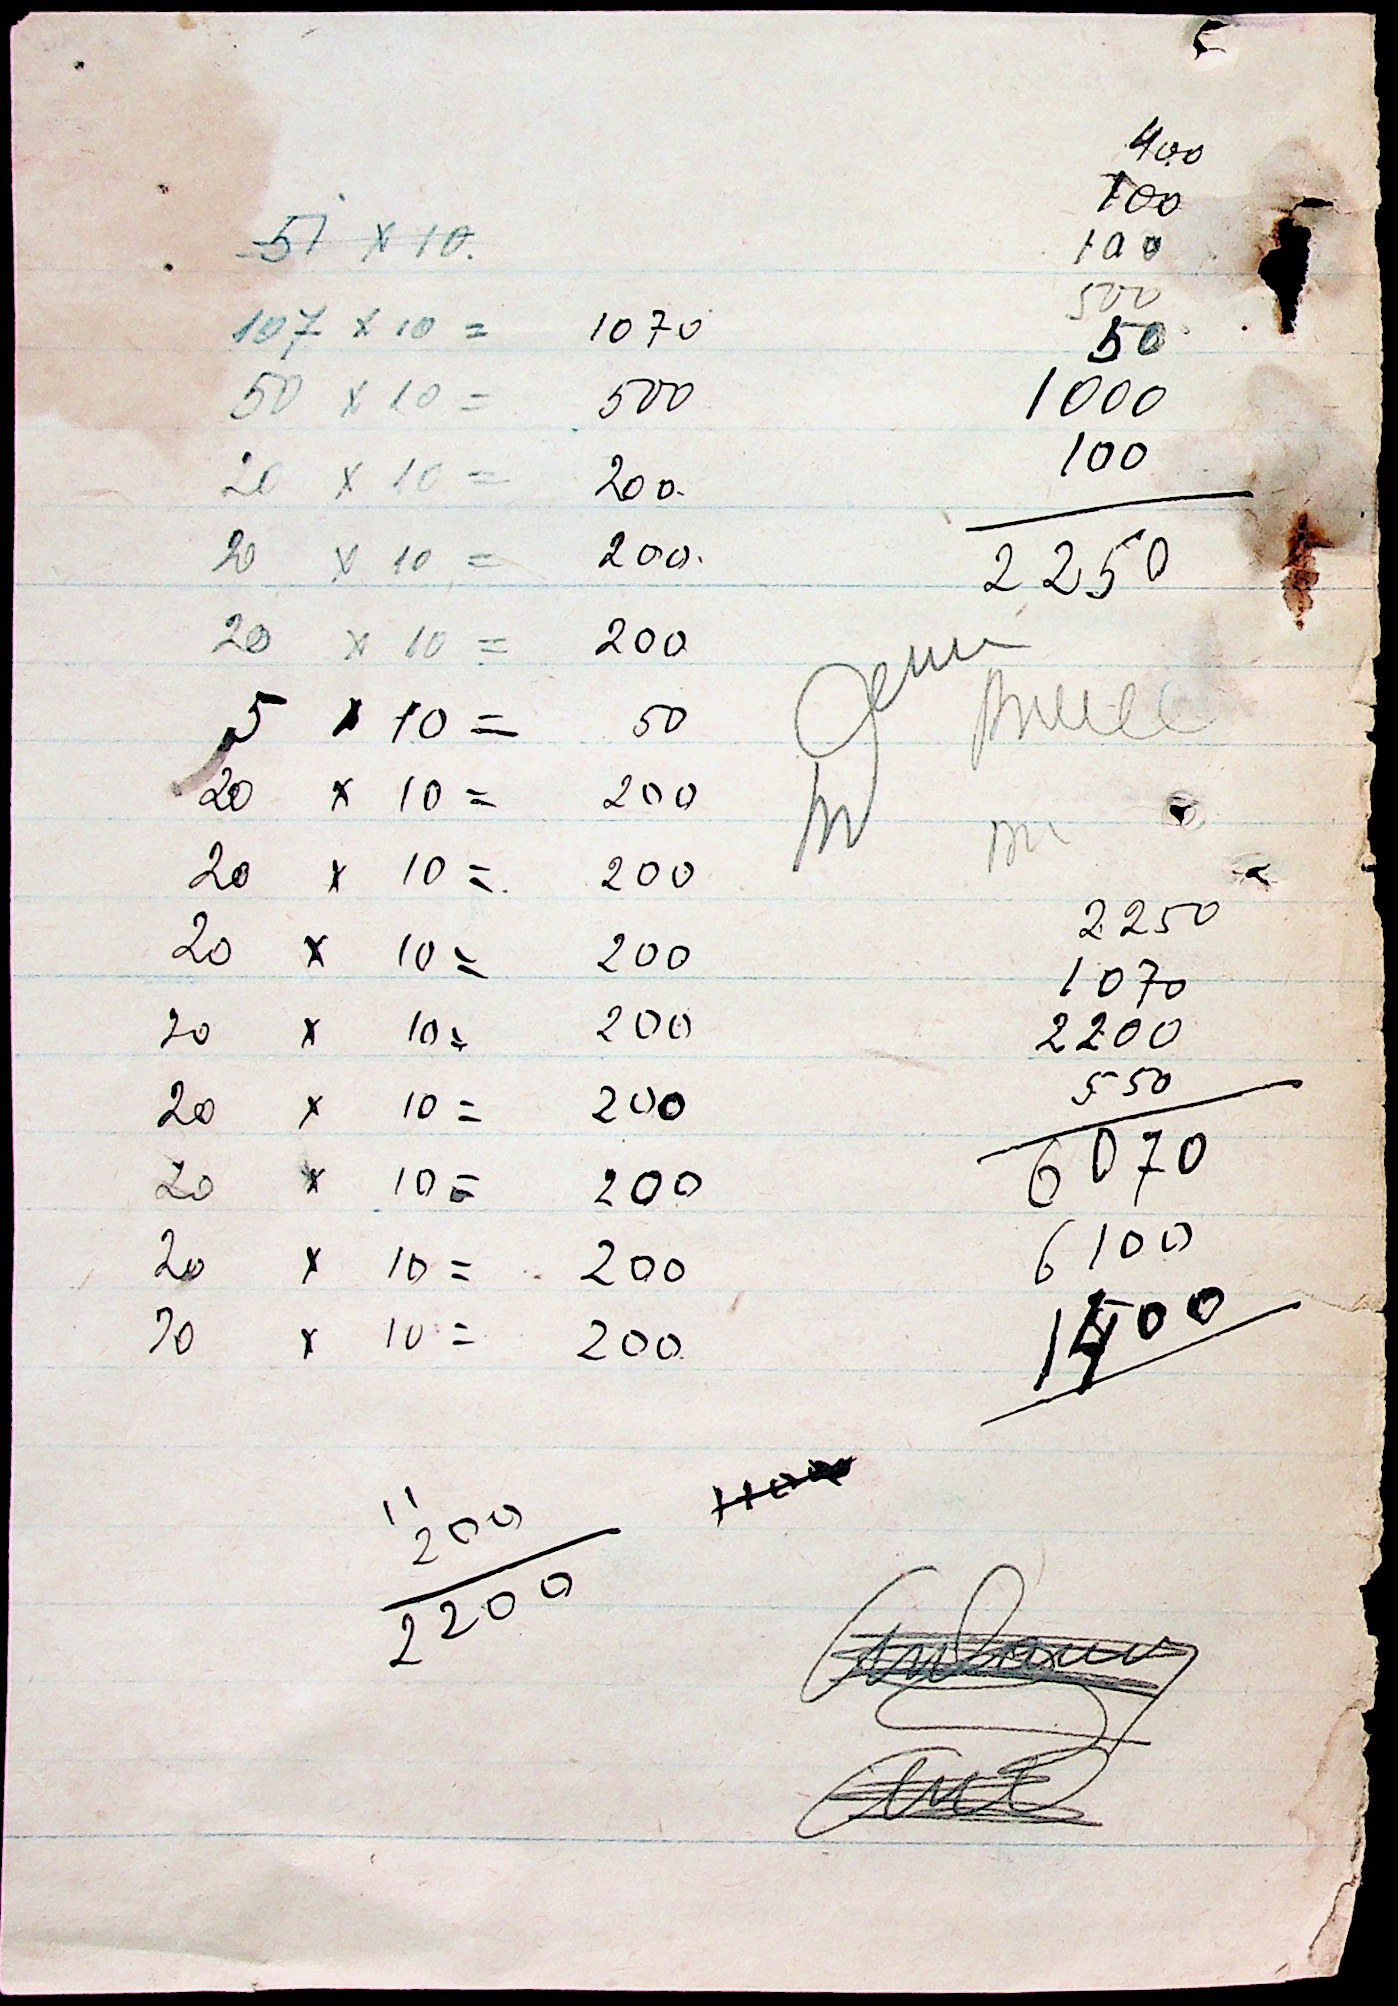 51 x 10.
107 x 10 = 1070
50 x 10 = 500
20 x 10 = 200.
20 x 10 = 200.
20 x 10 = 200
5 x 10 = 50
20 x 10 = 200
20 x 10 = 200
20 x 10 = 200
20 x 10 = 200
20 x 10 = 200
20 x 10 = 200
20 x 10 = 200
20 x 10 = 200
11
200
2200
400
100
100
500
50
1000
100
2250
2250
1070
2200
550
6070
6100